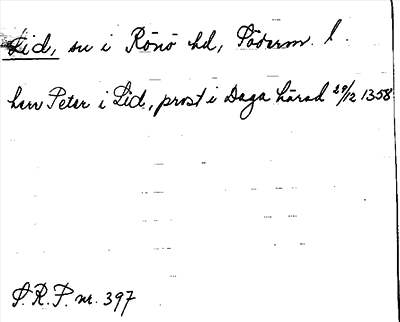 Lid, sn i Rönö hd, Söderm. l.
herr Peter i Lid, prost i Daga härad 29/12 1358
S.R.P. nr. 397